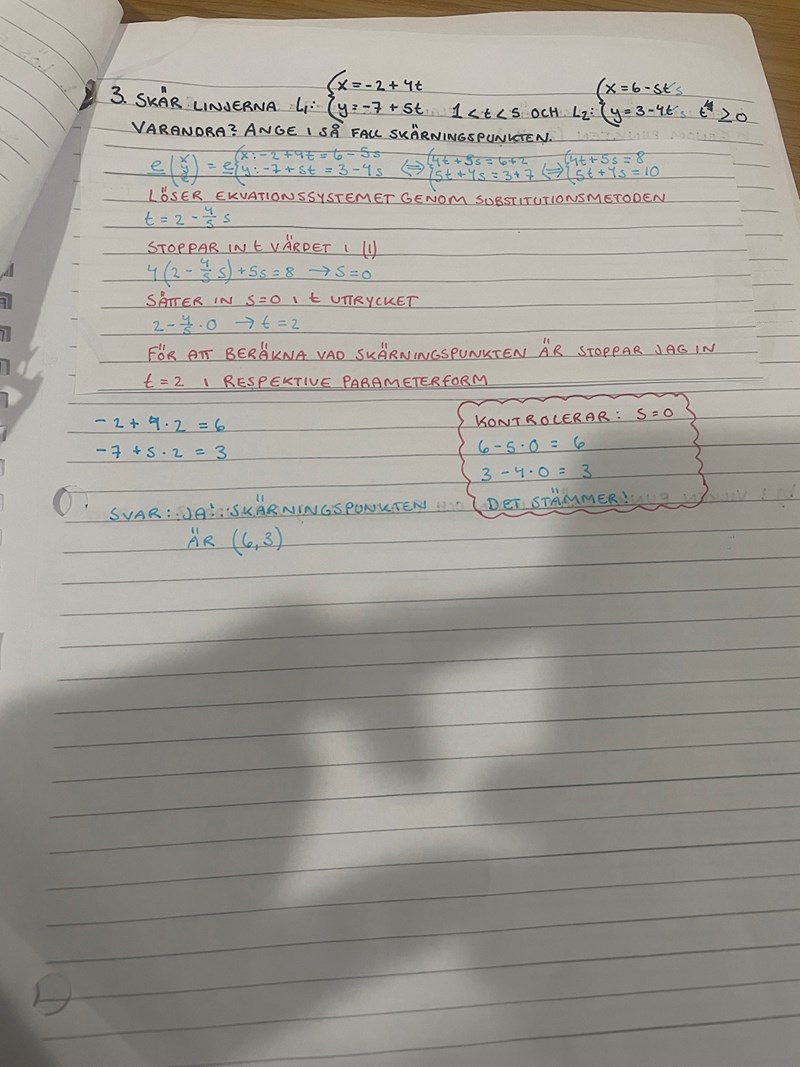 3. SKÄR LINJERNA L₁: { x = -2 + 4t
y = -7 + 5t 1 < t < 5 OCH L₂: { x = 6 - 5t s
y = 3 - 4t s t ≥ 0
VARANDRA? ANGE I SÅ FALL SKÄRNINGSPUNKTEN.
e (x y z) = e { x: -2 + 4t = 6 - 5s ⇔ { 4t + 5s = 6 + 2 ⇔ { 4t + 5s = 8
y: -7 + 5t = 3 - 4s 5t + 4s = 3 + 7 5t + 4s = 10
LÖSER EKVATIONSSYSTEMET GENOM SUBSTITUTIONSMETODEN
t = 2 - 4/5 s
STOPPAR IN t VÄRDET I (1)
4(2 - 4/5 s) + 5s = 8 → s = 0
SÄTTER IN S = 0 I t UTTRYCKET
2 - 4/5 · 0 → t = 2
FÖR ATT BERÄKNA VAD SKÄRNINGSPUNKTEN ÄR STOPPAR JAG IN
t = 2 I RESPEKTIVE PARAMETERFORM
-2 + 4 · 2 = 6
-7 + 5 · 2 = 3
KONTROLERAR: S = 0
6 - 5 · 0 = 6
3 - 4 · 0 = 3
DET STÄMMER!
SVAR: JA! SKÄRNINGSPUNKTEN
ÄR (6,3)